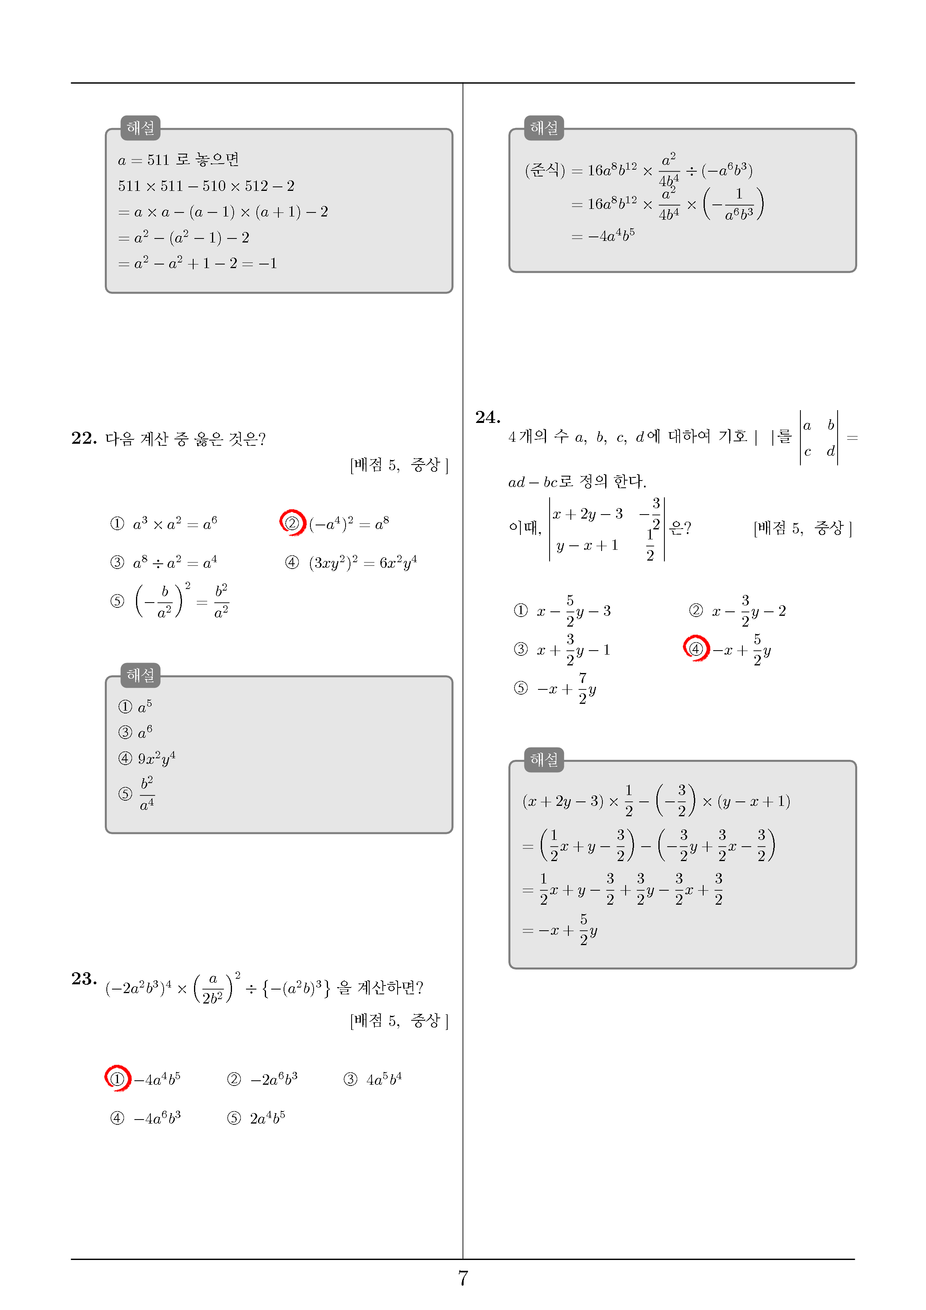 해설
a = 511 로 놓으면
511 × 511 − 510 × 512 − 2
= a × a − (a − 1) × (a + 1) − 2
= a² − (a² − 1) − 2
= a² − a² + 1 − 2 = −1
22. 다음 계산 중 옳은 것은?
[배점 5, 중상]
① a³ × a² = a⁶ ② (−a⁴)² = a⁸
③ a⁸ ÷ a² = a⁴ ④ (3xy²)² = 6x²y⁴
⑤ (−b/a²)² = b²/a²
해설
① a⁵
③ a⁶
④ 9x²y⁴
⑤ b²/a⁴
23. (−2a²b³)⁴ × (a/2b²)² ÷ {−(a²b)³} 을 계산하면?
[배점 5, 중상]
① −4a⁴b⁵ ② −2a⁶b³ ③ 4a⁵b⁴
④ −4a⁶b³ ⑤ 2a⁴b⁵
해설
(준식) = 16a⁸b¹² × a²/4b⁴ ÷ (−a⁶b³)
= 16a⁸b¹² × a²/4b⁴ × (−1/a⁶b³)
= −4a⁴b⁵
24. 4개의 수 a, b, c, d에 대하여 기호 | |를 |a b; c d| =
ad − bc로 정의 한다.
이때, |x + 2y − 3 −3/2; y − x + 1 1/2| 은? [배점 5, 중상]
① x − 5/2y − 3 ② x − 3/2y − 2
③ x + 3/2y − 1 ④ −x + 5/2y
⑤ −x + 7/2y
해설
(x + 2y − 3) × 1/2 − (−3/2) × (y − x + 1)
= (1/2x + y − 3/2) − (−3/2y + 3/2x − 3/2)
= 1/2x + y − 3/2 + 3/2y − 3/2x + 3/2
= −x + 5/2y
7